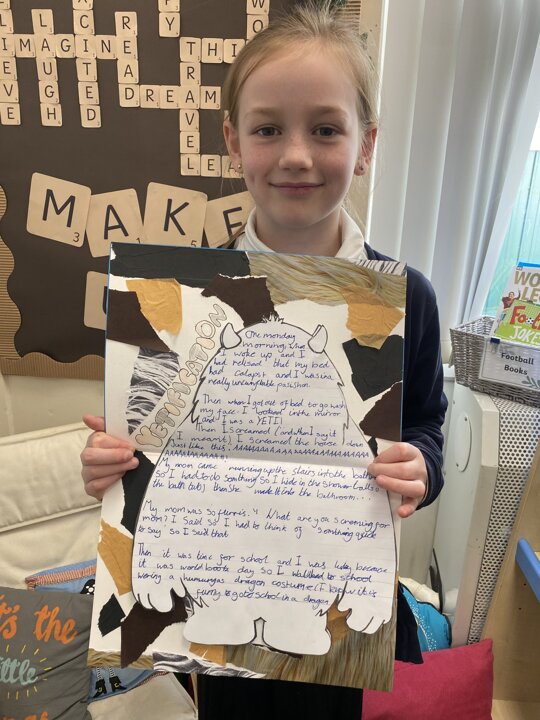 IMAGINE
LAUGH
ACTED
READ
TRY
THIS
TRAVEL
DREAM
LEA
MAKE
YETIFICATION
One monday
morning, I
I woke up and I
had relised that my bed
had calapst and I was in a
really uncumftable pasishon.
Then when I got out of bed to go wash
my face. I looked in the mirror
and I was a YETI!
Then I screamed (and when I say it
I meant) I screamed the house down
Just like this, AAAAAAAAAAAAAAAAAAAAA
AAAAAAAAAAAAAAAAAAAAAAAAAAAAAAAA!
My mom came running up the stairs into the bathroom
So I had to do somthing So I hide in the shower (also
the bath tub) then She made it into the bathroom...
My mom was so furris. " What are you screaming for
mom? I said so I had to think of somthing quick
to say so I said that
Then it was time for school and I was lucky because
it was world books day so I walked to school
wering a humungas dragon costume (I know it is
funny to go to school in a dragon
Football
Books
JOKE
it's the
little